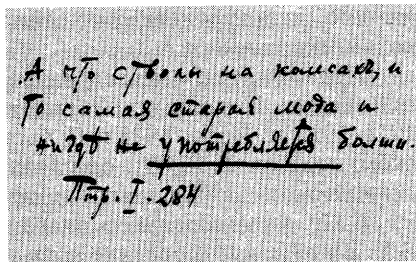 А что стволы на комсахъ, и
то самая старая мода и
нигдѣ не употребляется болши.
Птр. I. 284